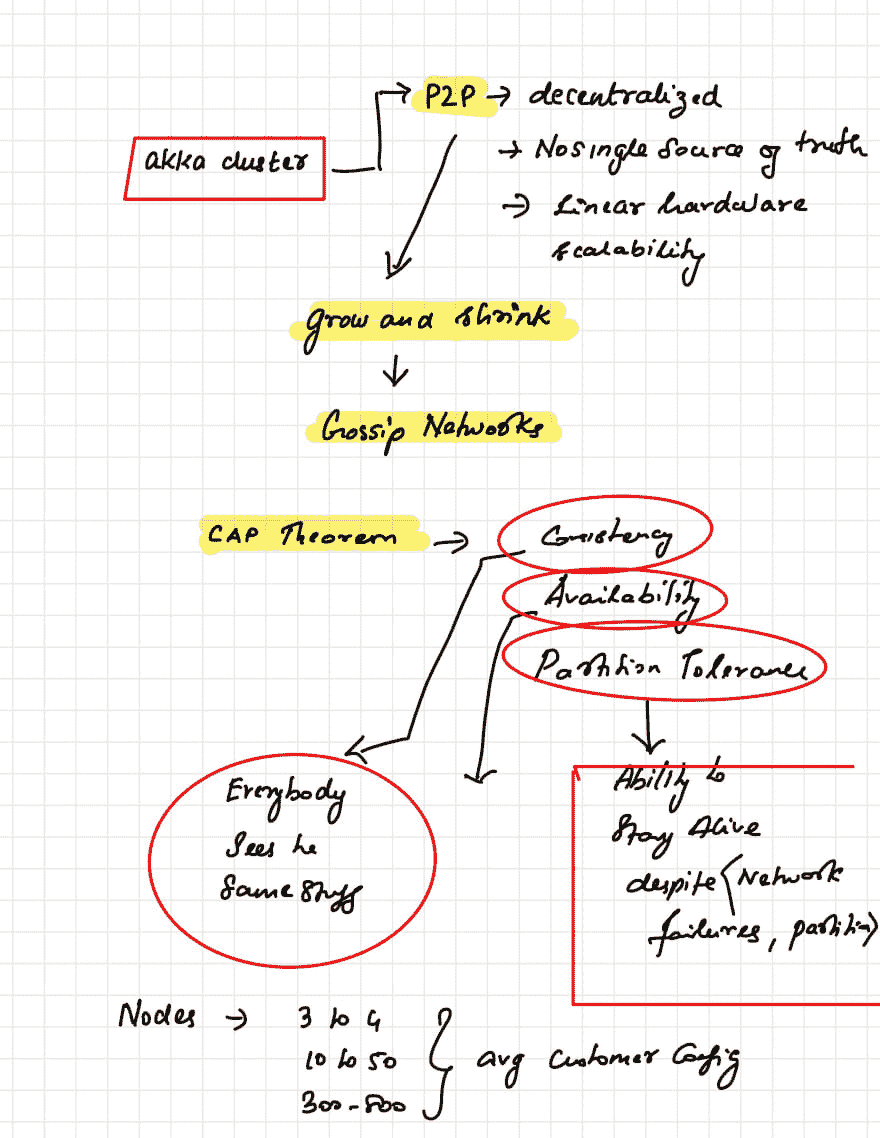 P2P → decentralized
akka cluster
→ No single source of truth
→ Linear hardware
scalability
Grow and shrink
Gossip Networks
CAP Theorem → Consistency
Availability
Partition Tolerance
Everybody
sees he
same stuff
Ability to
stay Alive
despite Network
failures, partition
Nodes → 3 to 4
10 to 50
avg customer config
300-800